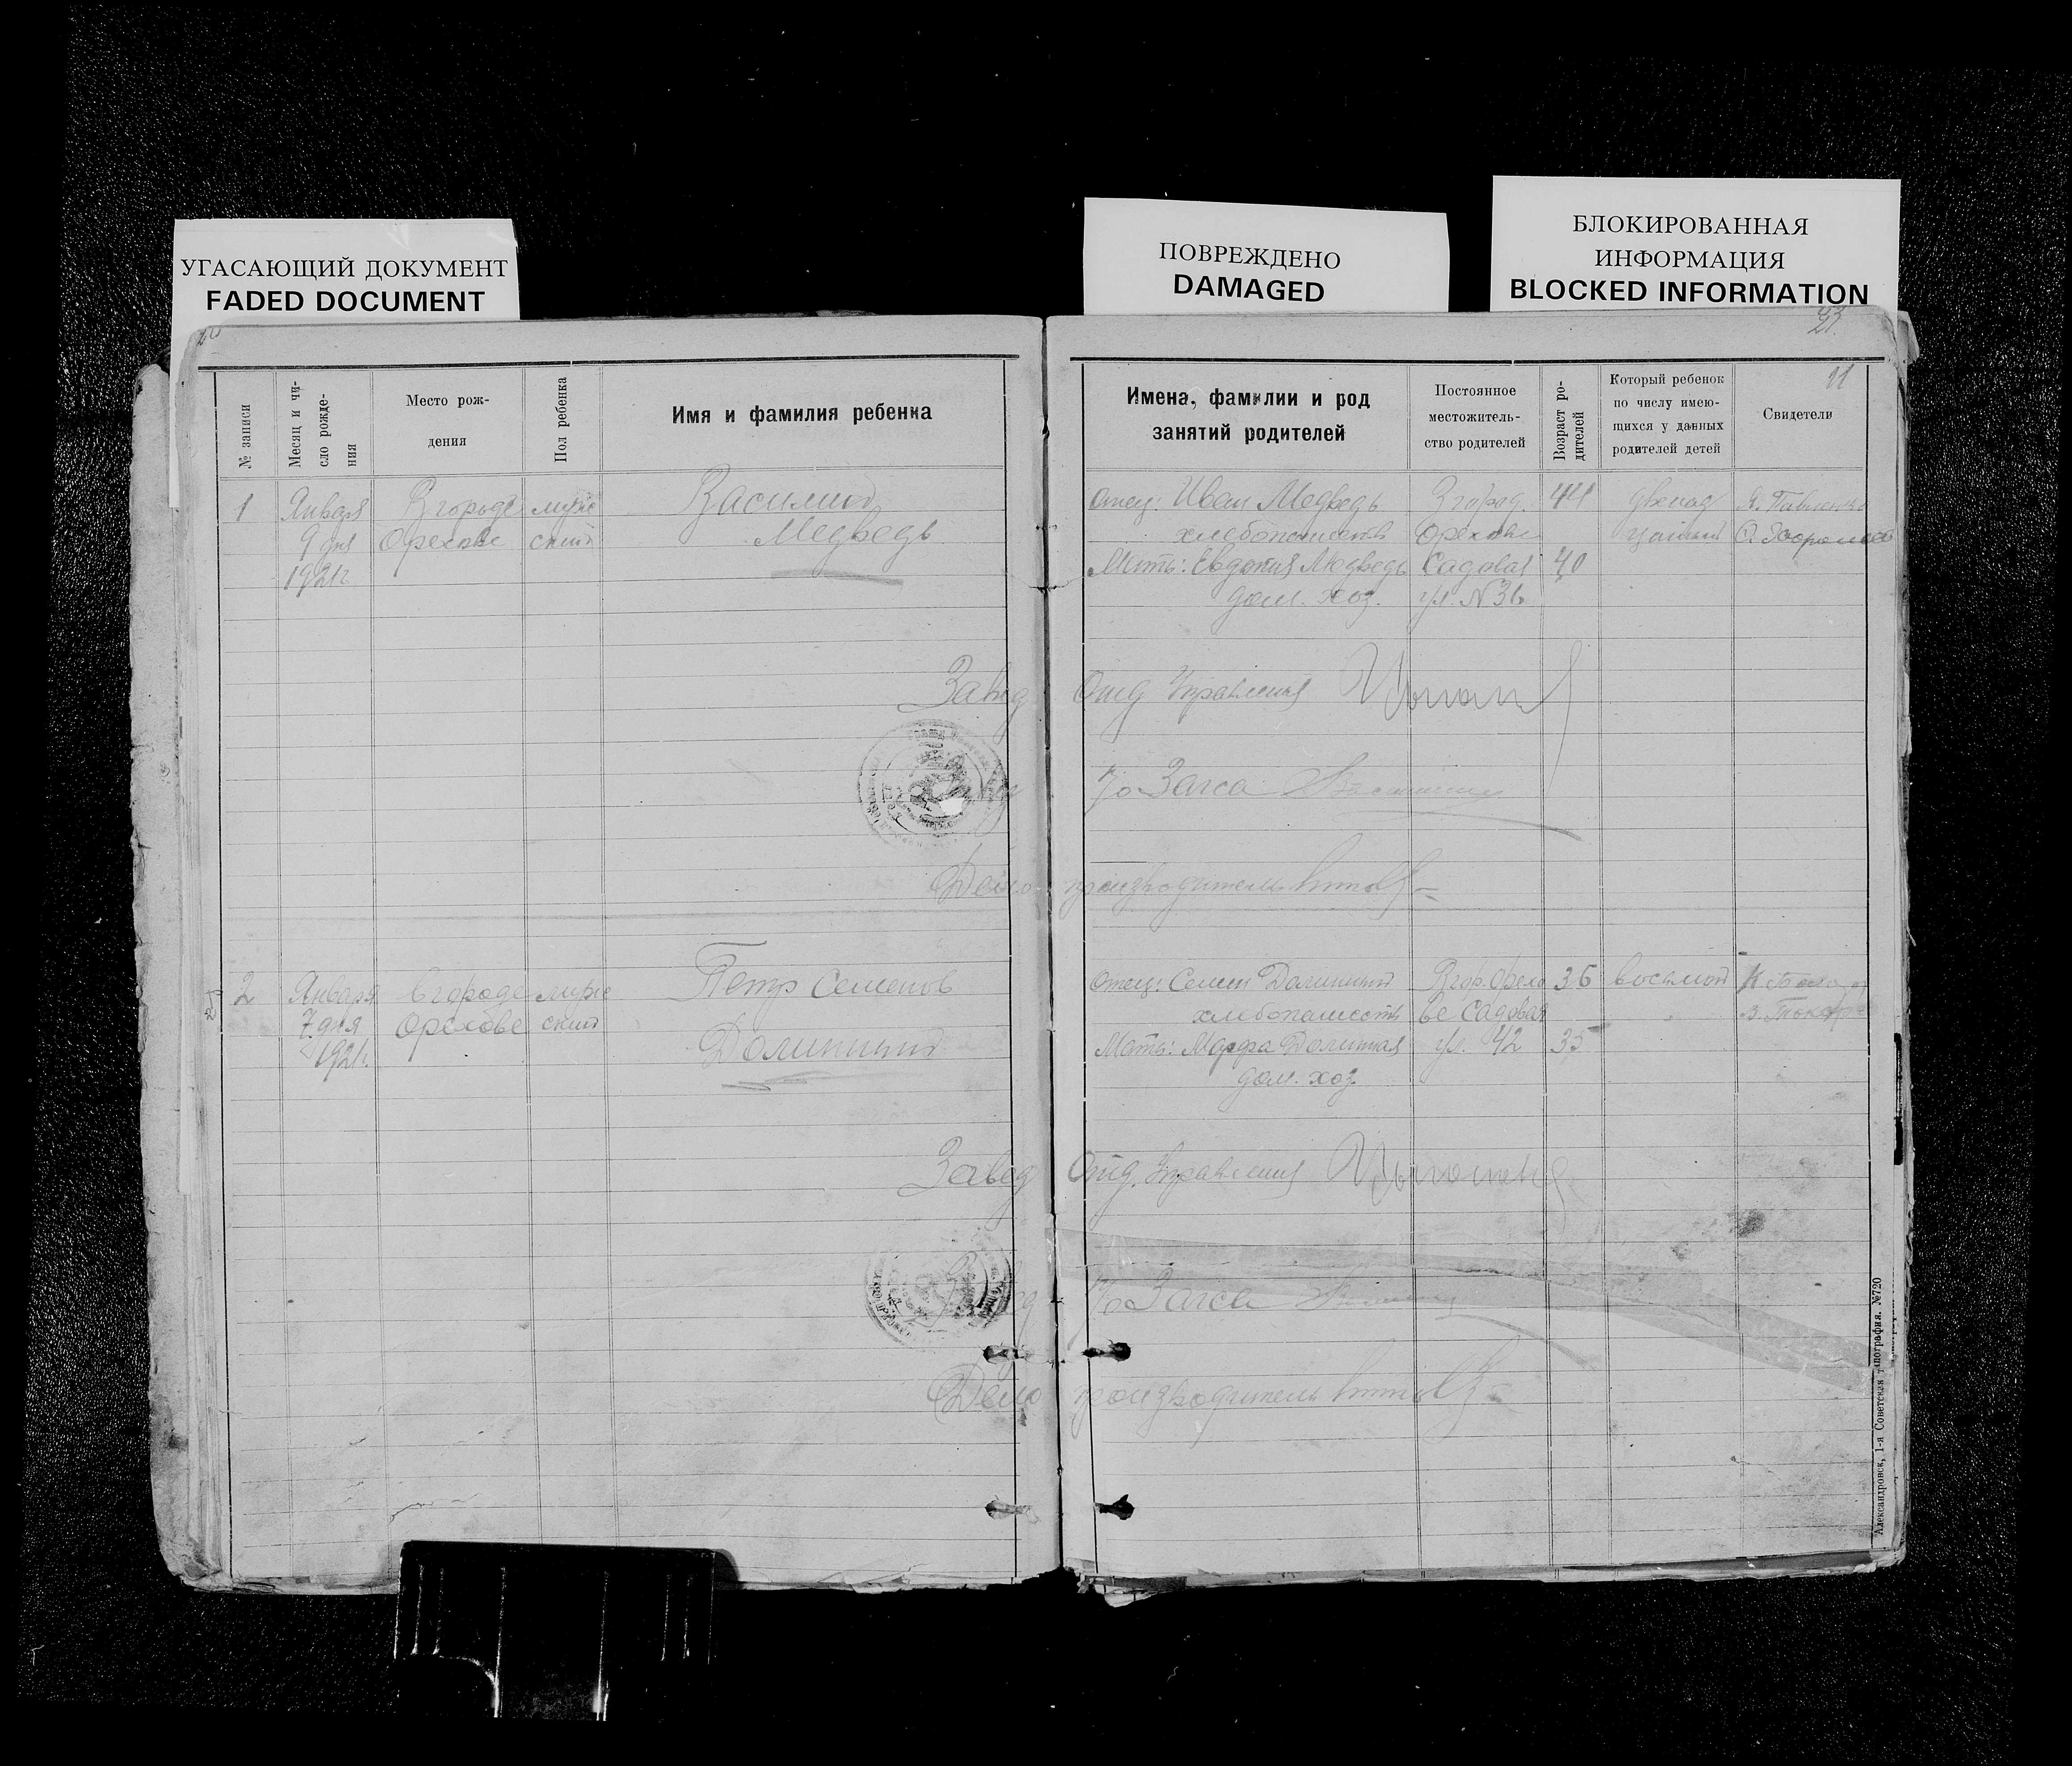 УГАСАЮЩИЙ ДОКУМЕНТ
FADED DOCUMENT
ПОВРЕЖДЕНО
DAMAGED
БЛОКИРОВАННАЯ
ИНФОРМАЦИЯ
BLOCKED INFORMATION
№ записи
Месяц и чи-
сло рожде-
ния
Место рож-
дения
Пол ребенка
Имя и фамилия ребенка
Имена, фамилии и род
занятий родителей
Постоянное
местожитель-
ство родителей
Возраст ро-
дителей
Который ребенок
по числу имею-
щихся у данных
родителей детей
Свидетели
11
1
Января
9 дня
1921 г
В городе
Орехове
муж
ской
Василий
Медведь
Отец: Иван Медведь
хлебопашеств
Мать: Евдокия Медведь
дом. хоз.
В город.
Орехове
Садовая
ул. №36
44
40
двенад
цатый
Завед Отд Управления
Загса
Делопроизводитель
2
Января
7 дня
1921 г.
в городе
Орехове
муж
ской
Петр Семенов
Долинный
Отец: Семен Долинный
хлебопашеств
Мать: Марфа Долинная
дом. хоз.
В гор. Орехо
ве Садовая
ул. 42
36
35
восьмой
Завед Отд. Управления
Загса
Делопроизводитель
Александровск, 1-я Советская типография. №720